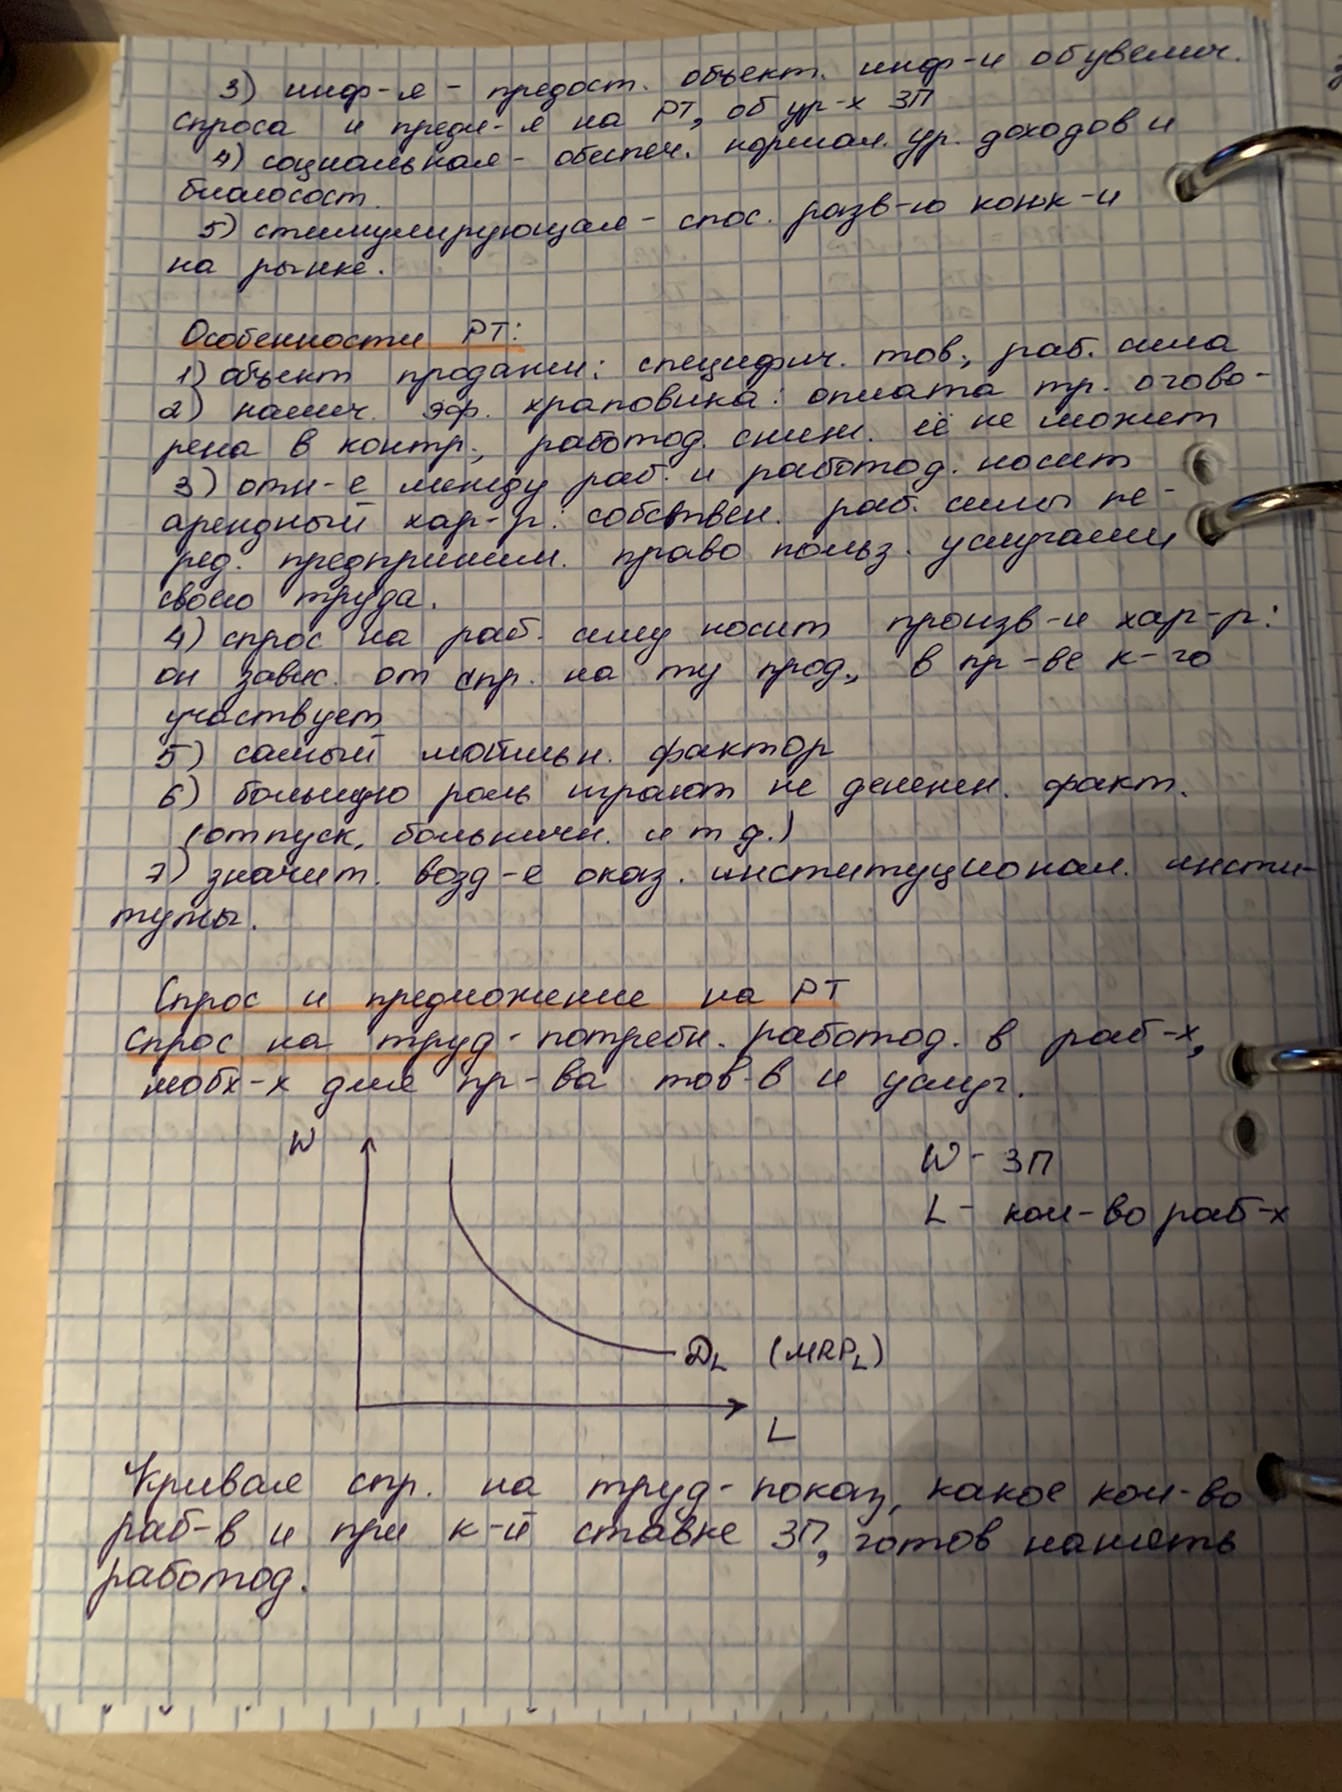 3) инф-я - предост. объект. инф-и об увелич.
спроса и предл-я на РТ, об ур-х ЗП
4) социальная - обеспеч. нормал. ур. доходов и
благосост.
5) стимулирующая - спос. разв-ю конк-и
на рынке.
Особенности РТ:
1) объект продажи: специфич. тов., раб. сила
2) налич. эф. храповика: оплата тр. огово-
рена в контр., работод. сниж. её не может
3) отн-е между раб. и работод. носит
арендный хар-р: собствен. раб. силы пе-
ред. предприним. право польз. услугами
своего труда.
4) спрос на раб. силу носит произв-й хар-р:
он завис. от спр. на ту прод., в пр-ве к-го
участвует
5) самый мобильн. фактор
6) большую роль играют не денежн. факт.
(отпуск, больничн. и т д.)
7) значит. возд-е оказ. институционал. инсти-
туты.
Спрос и предложение на РТ
Спрос на труд - потребн. работод. в раб-х,
необх-х для пр-ва тов-в и услуг.
W
W - ЗП
L - кол-во раб-х
DL (MRPL)
L
Кривая спр. на труд - показ, какое кол-во
раб-в и при к-й ставке ЗП, готов нанять
работод.